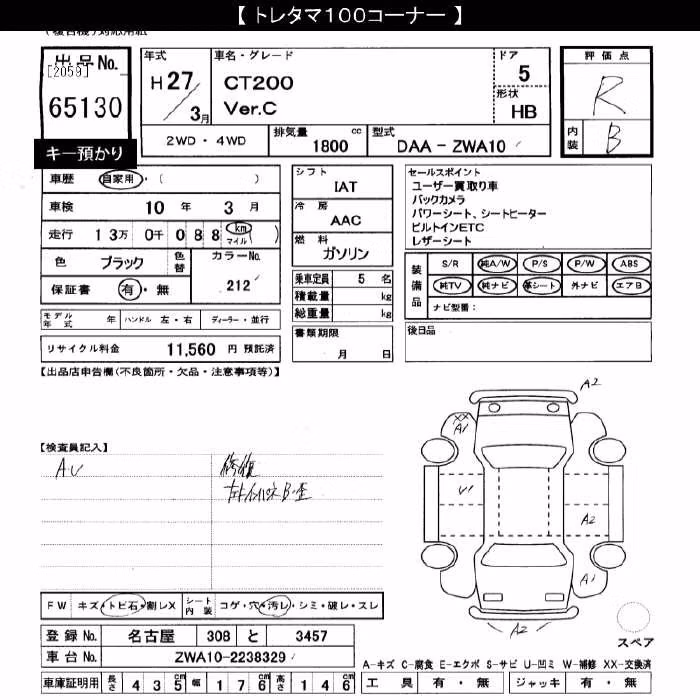 【 トレタマ１００コーナー 】
(複合機)対応用紙
出品No. [2059]
65130
キー預かり
年式
H 27 / 3月
車名・グレード
CT200
Ver.C
ドア
5
形状
HB
評価点
R
内装 B
2WD ・ 4WD
排気量 1800 cc
型式 DAA - ZWA10
車歴 自家用 ・ ( )
車検 10 年 3 月
走行 1 3万 0千 0 8 8 (km マイル)
色 ブラック 色替 カラーNo.
保証書 有 ・ 無 212
シフト
IAT
冷房
AAC
燃料
ガソリン
乗車定員 5 名
積載量 kg
総重量 kg
書類期限
月 日
セールスポイント
ユーザー買取り車
バックカメラ
パワーシート、シートヒーター
ビルトインETC
レザーシート
装備品
S/R 純A/W P/S P/W ABS
純TV 純ナビ 革シート 外ナビ エアB
ナビ型番：
後日品
モデル年式 年 ハンドル 左・右 ディーラー・並行
リサイクル料金 11,560 円 預託済
【出品店申告欄(不良箇所・欠品・注意事項等)】
【検査員記入】
AU 修復
A2
XX
A1
U1
A2
A1
A2
スペア
FW キズ・トビ石・割レX シート内装 コゲ・穴・汚レ・シミ・破レ・スレ
登録No. 名古屋 308 と 3457
車台No. ZWA10-2238329
車庫証明用 長さ 4 3 5cm 幅 1 7 6cm 高さ 1 4 6cm
A-キズ C-腐食 E-エクボ S-サビ U-凹ミ W-補修 XX-交換済
工具 有 ・ 無 ジャッキ 有 ・ 無